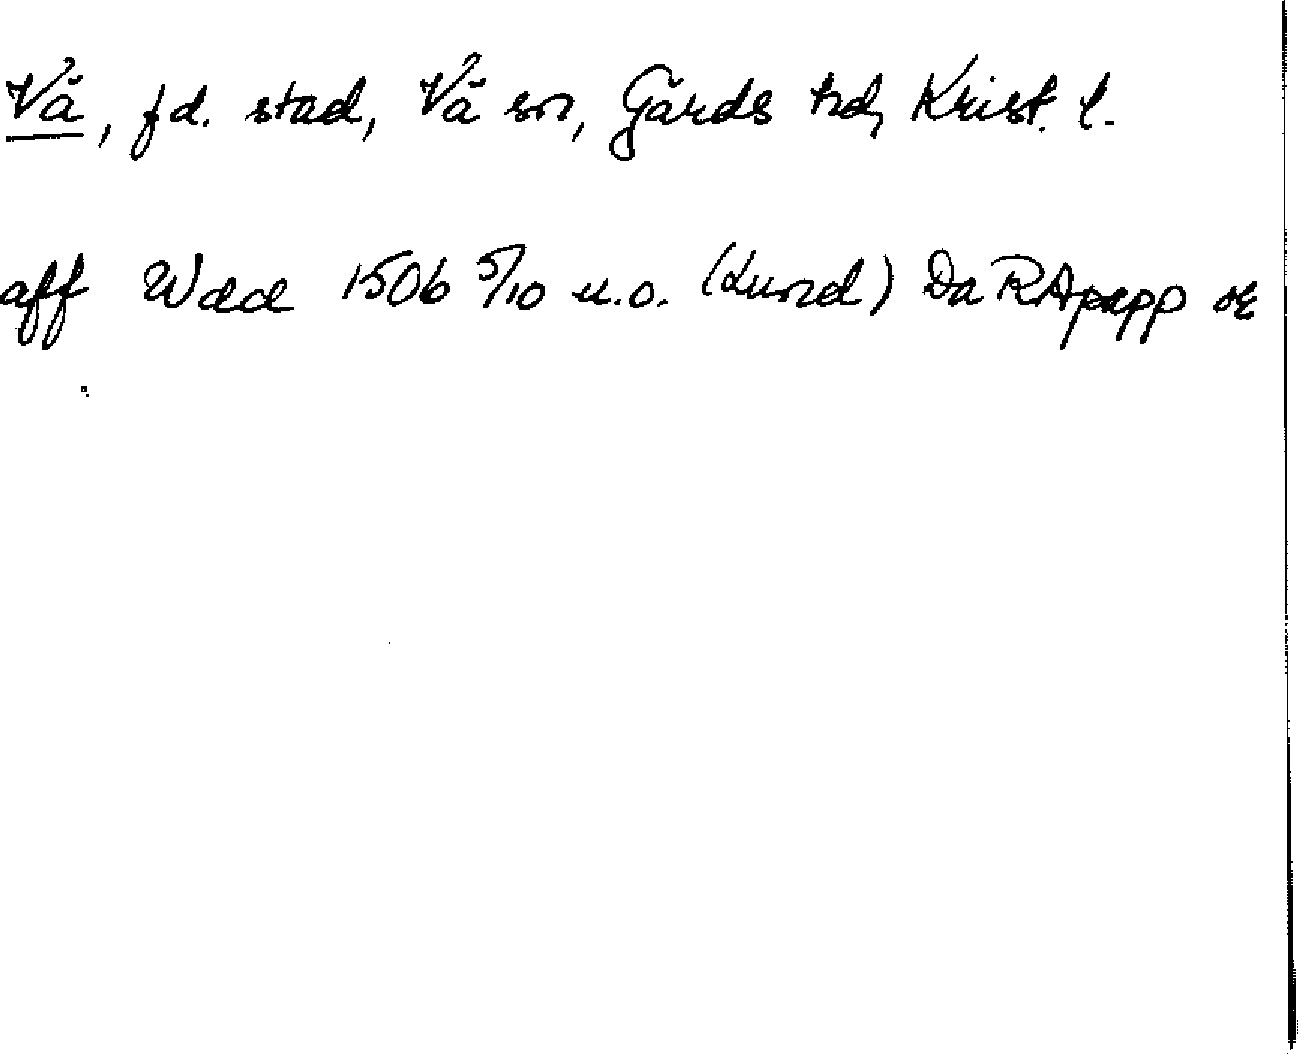 Vä, fd. stad, Vä sn, Gärds hd, Krist. l.
aff Waa 1506 5/10 u.o. (Lund) Da RApapp or